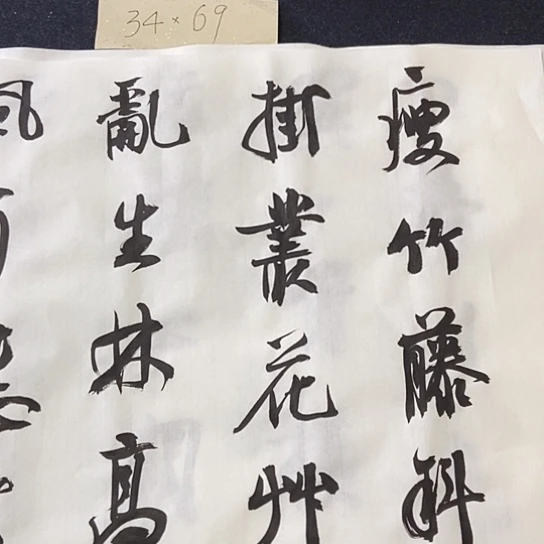 34×69
瘦竹藤斜
掛叢花艸
亂生林高
風